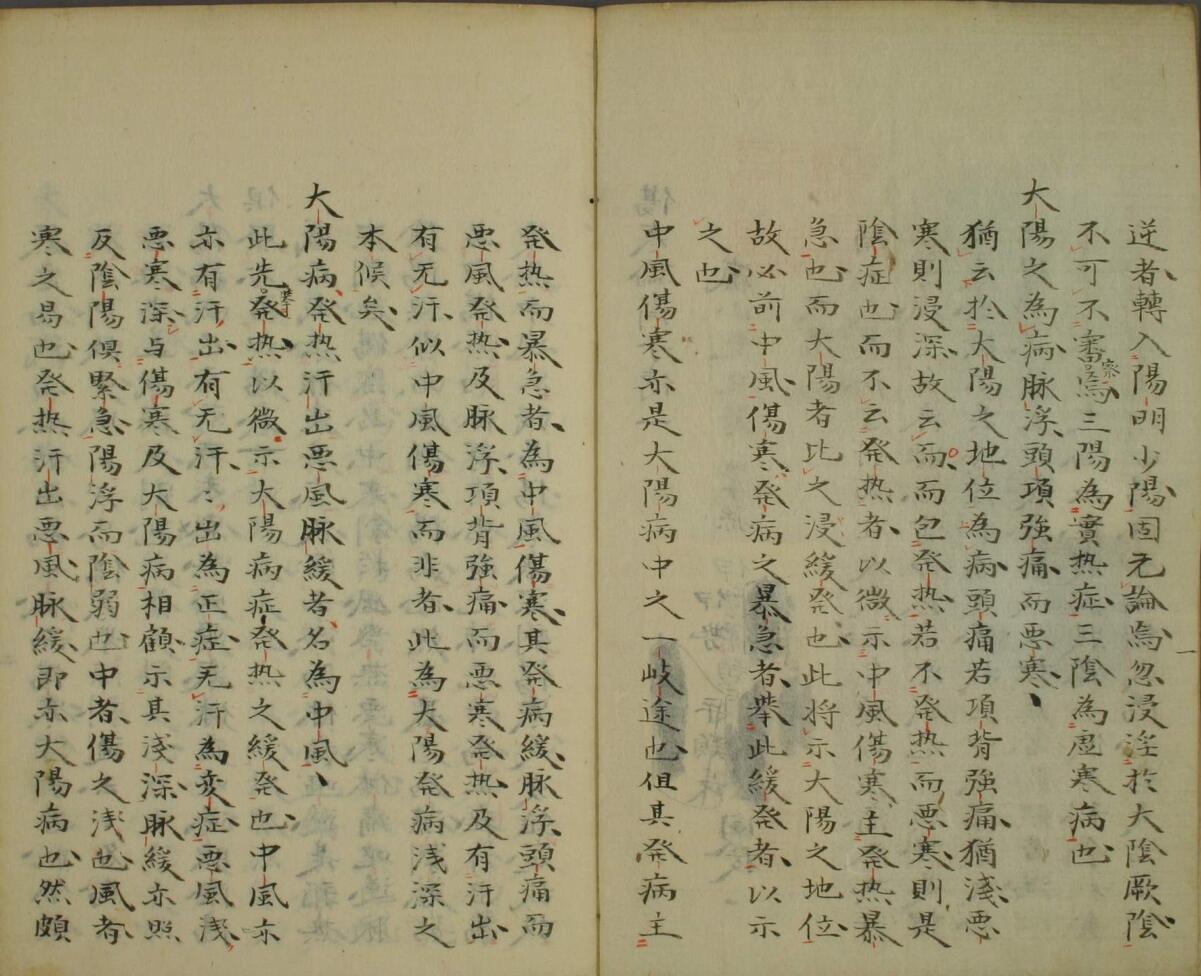 逆者轉入陽明少陽固无論焉忽浸淫於大陰厥陰
不可不審察焉三陽為實热症三陰為虛寒病也
大陽之為病脉浮頭項強痛而悪寒
猶云於大陽之地位為病頭痛若項背強痛猶淺悪
寒則浸深故云而而包発热若不発热而悪寒則是
陰症也而不云発热者以微示中風傷寒主発热暴
急也而大陽者比之浸緩発也此将示大陽之地位
故必前中風傷寒発病之暴急者挙此緩発者以示
之也
中風傷寒亦是大陽病中之一岐途也但其発病主
発热而暴急者為中風傷寒其発病緩脉浮頭痛而
悪風発热及脉浮項背強痛而悪寒発热及有汗出
有无汗似中風傷寒而非者此為大陽発病浅深之
本候矣
大陽病発热汗出悪風脉緩者名為中風
此先発热以微示大陽病症発热之緩発也中風亦
亦有汗出有无汗汗出為正症无汗為変症悪風浅
悪寒深与傷寒及大陽病相顧示其淺深脉緩亦照
反陰陽倶緊急陽浮而陰弱也中者傷之浅也風者
寒之易也発热汗出悪風脉緩即亦大陽病也然頗